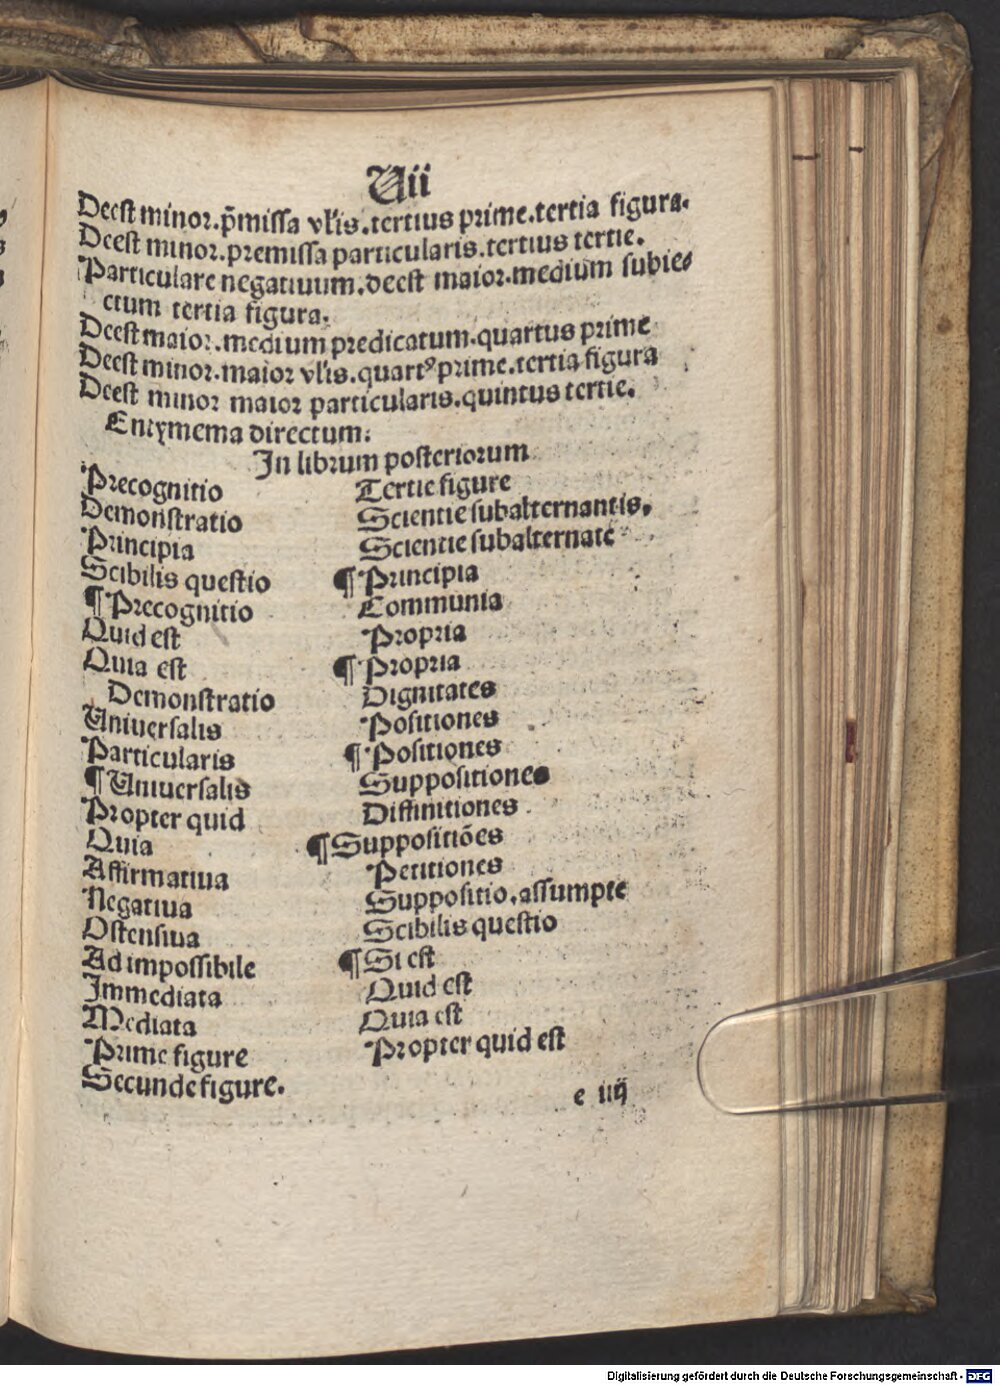 Vii
Deest minor.p̄missa vl'is.tertius prime.tertia figura.
Deest minor.premissa particularis.tertius tertie.
Particulare negatiuum.deest maior.medium subie⸗
ctum tertia figura.
Deest maior.medium predicatum.quartus prime
Deest minor.maior vl'is.quartꝰ prime.tertia figura
Deest minor maior particularis.quintus tertie.
Entymema directum.
In librum posteriorum
Precognitio
Demonstratio
Principia
Scibilis questio
¶ Precognitio
Quid est
Quia est
Demonstratio
Uniuersalis
Particularis
¶ Uniuersalis
Propter quid
Quia
Affirmatiua
Negatiua
Ostensiua
Ad impossibile
Immediata
Mediata
Prime figure
Secunde figure.
Tertie figure
Scientie subalternantis.
Scientie subalternate
¶ Principia
Communia
Propria
¶ Propria
Dignitates
Positiones
¶ Positiones
Suppositiones
Diffinitiones
¶ Suppositiōes
Petitiones
Suppositio.assumpte
Scibilis questio
¶ Si est
Quid est
Quia est
Propter quid est
e iiij
Digitalisierung gefördert durch die Deutsche Forschungsgemeinschaft - DFG